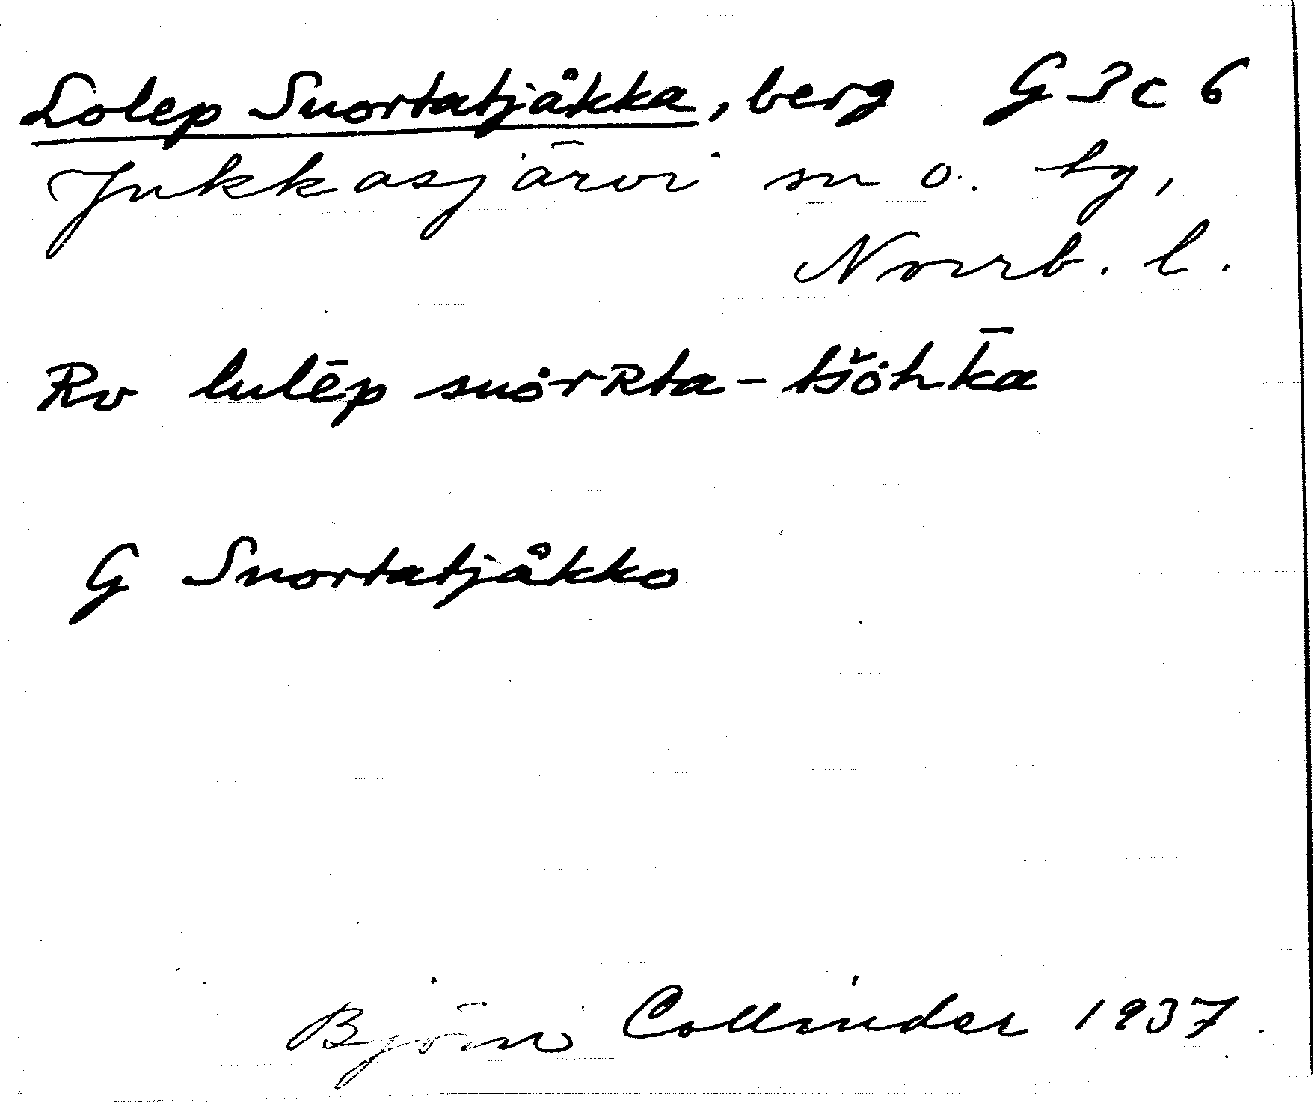 Lolep Snortatjåkka, berg G 3 c 6
Jukkasjärvi sn o. tg,
Norrb. l.
Rv lulēp snȯrRta-tšȯh k̄a
G Snortatjåkko
Björn Collinder 1937.